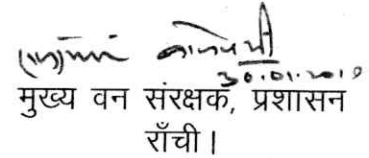 30.01.2019
मुख्य वन संरक्षक, प्रशासन
राँची।